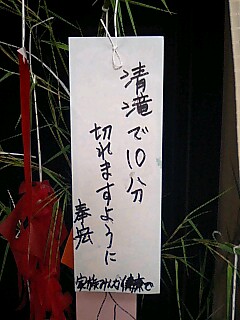 清滝で10分
切れますように
奉宏
家族みんな健康で